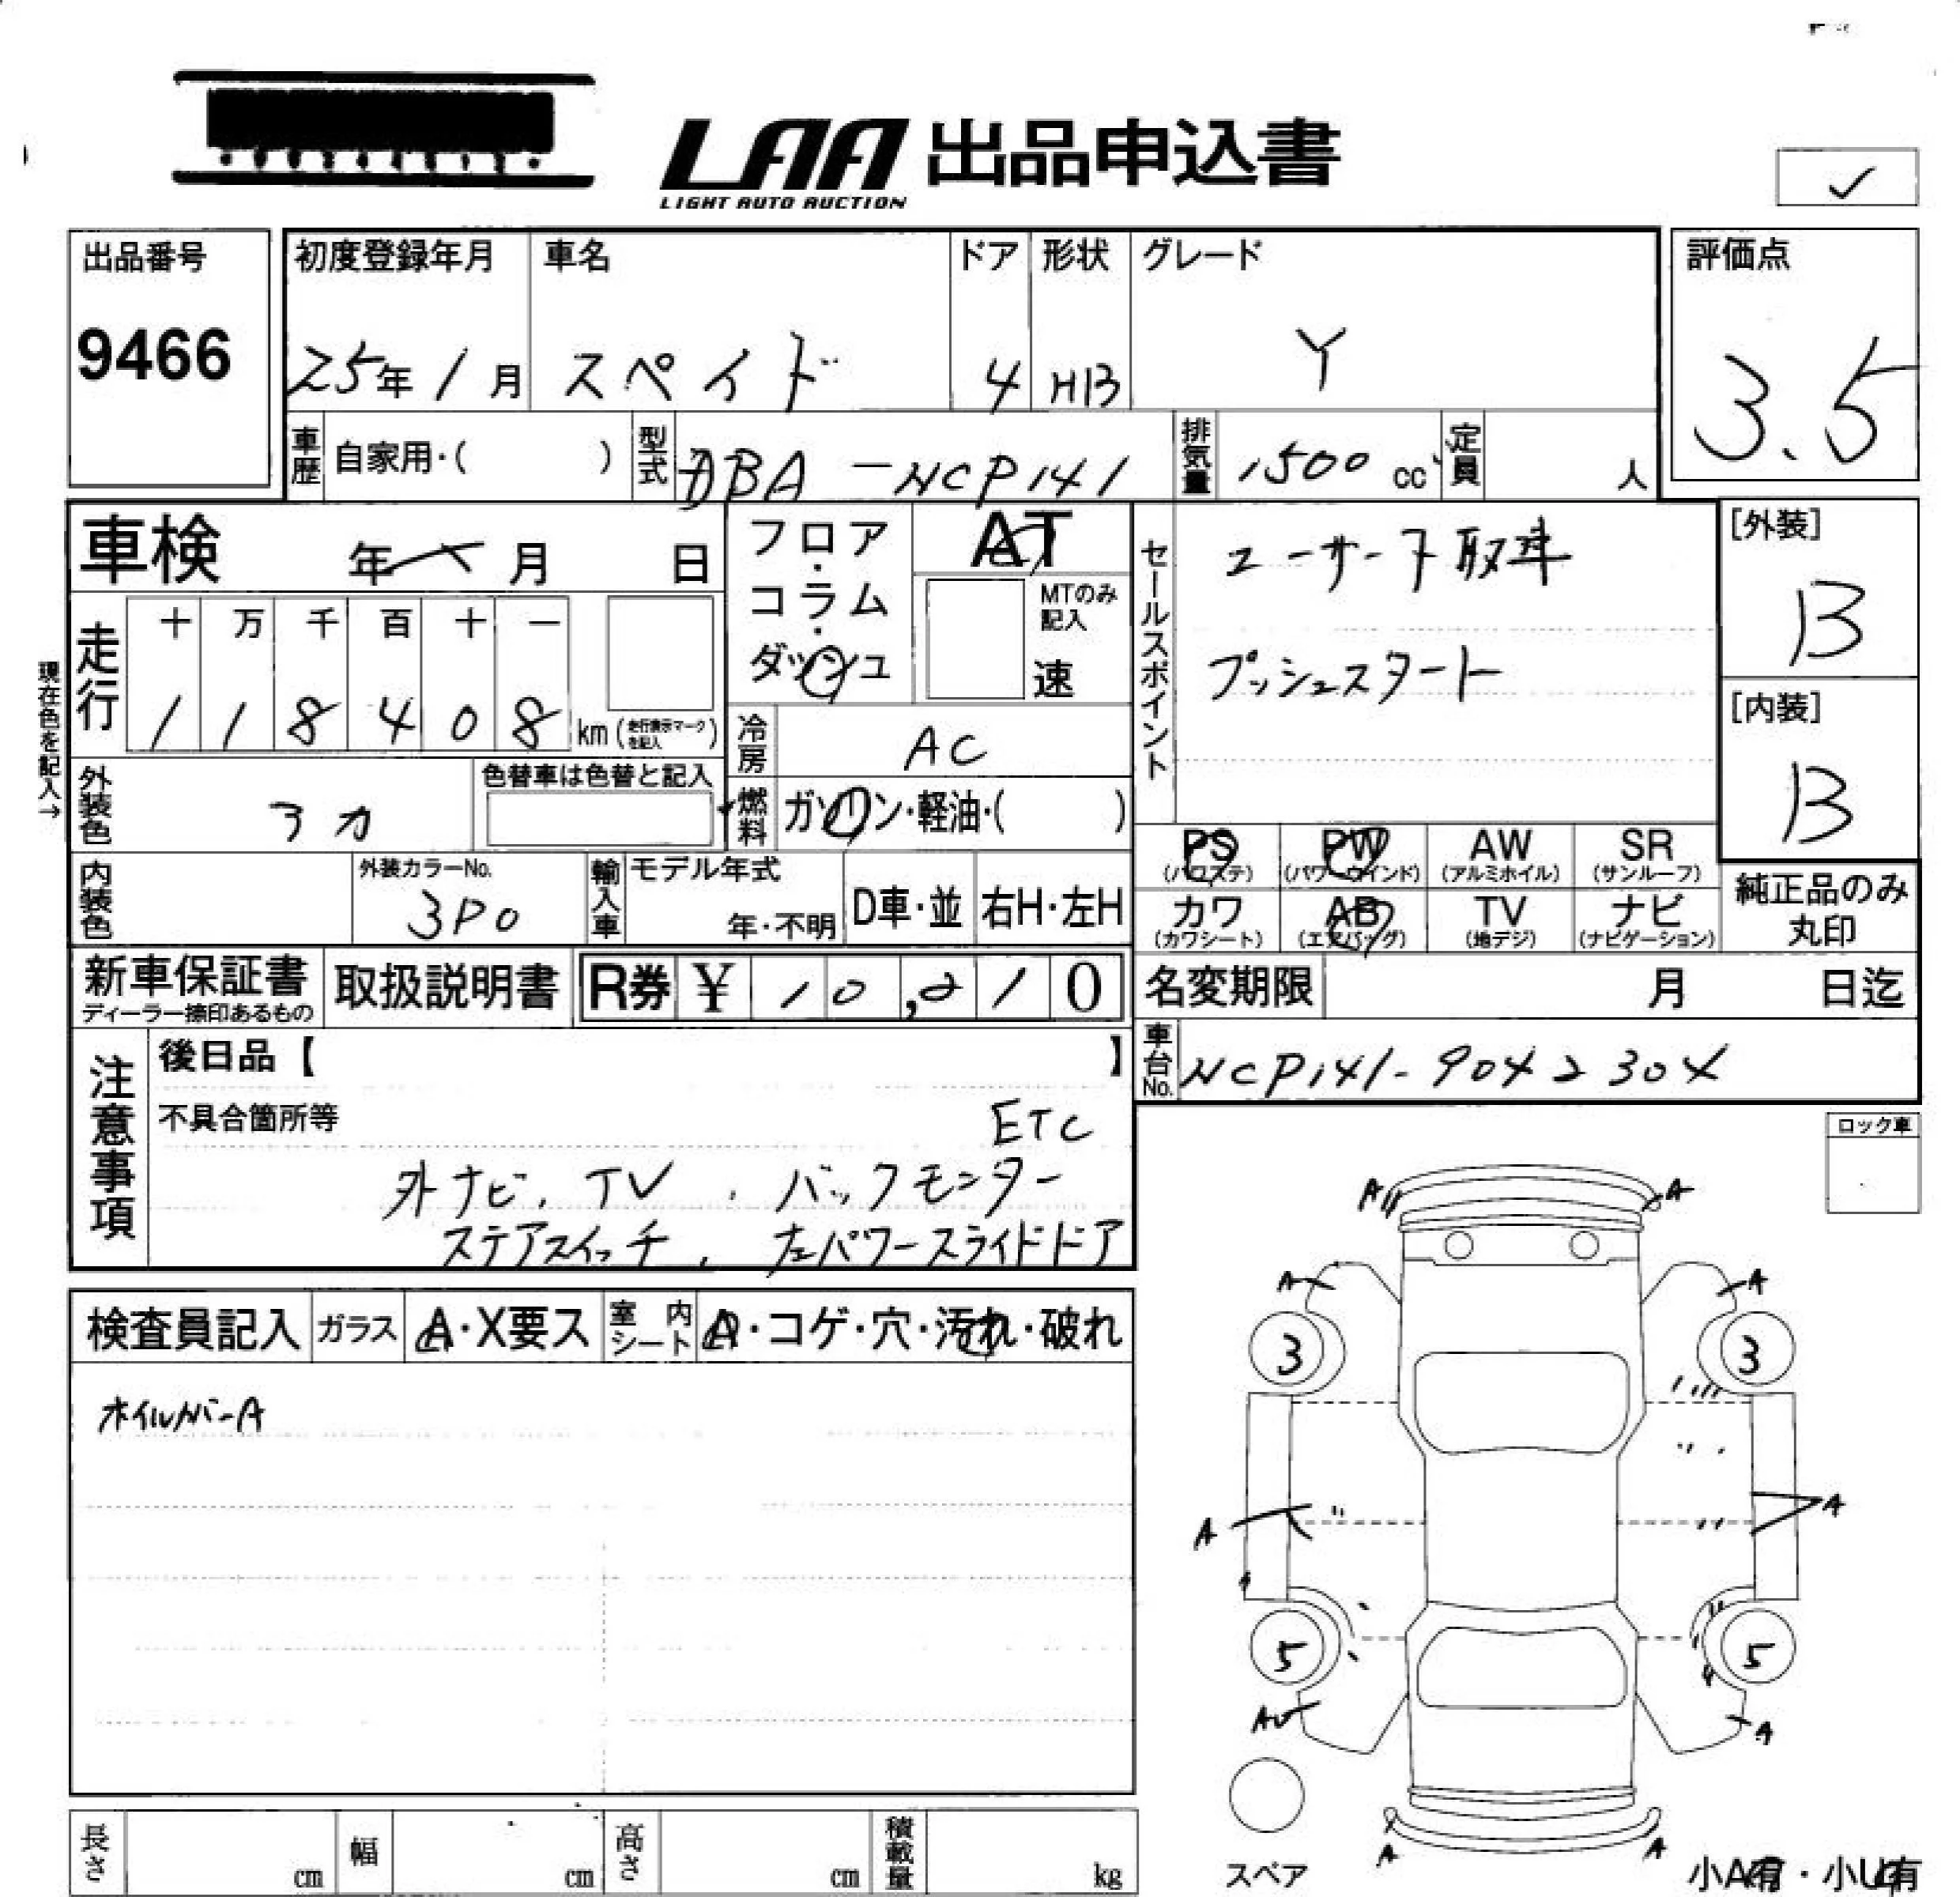 LAA 出品申込書
LIGHT AUTO AUCTION
✓
出品番号
9466
初度登録年月
25年1月
車名
スペイド
ドア
4
形状
HB
グレード
Y
評価点
3.5
車歴 自家用・( )
型式 DBA-NCP141
排気量 1500 cc
定員 人
車検 年 月 日
フロア・コラム・ダッシュ
AT
MTのみ記入
速
セールスポイント
ユーザー下取車
プッシュスタート
[外装]
B
[内装]
B
現在色を記入→
走行
十 万 千 百 十 一
1 1 8 4 0 8 km (走行表示マークを記入)
冷房 AC
外装色 アカ
色替車は色替と記入
燃料 ガソリン・軽油・( )
内装色
外装カラーNo.
3P0
輸入車
モデル年式
年・不明
D車・並
右H・左H
PS (パワステ)
PW (パワーウインド)
AW (アルミホイル)
SR (サンルーフ)
カワ (カワシート)
AB (エアバッグ)
TV (地デジ)
ナビ (ナビゲーション)
純正品のみ丸印
新車保証書
ディーラー捺印あるもの
取扱説明書
R券 ¥ 10,210
名変期限 月 日迄
車台No. NCP141-9042304
注意事項
後日品【 】
不具合箇所等
ETC
外ナビ、TV、バックモニター
ステアスイッチ、左パワースライドドア
ロック車
検査員記入
ガラス A・X要ス
室内シート A・コゲ・穴・汚れ・破れ
ホイルカバーA
A A
A A
3 3
A A
5 5
A
A A
スペア
小A有・小U有
長さ cm
幅 cm
高さ cm
積載量 kg